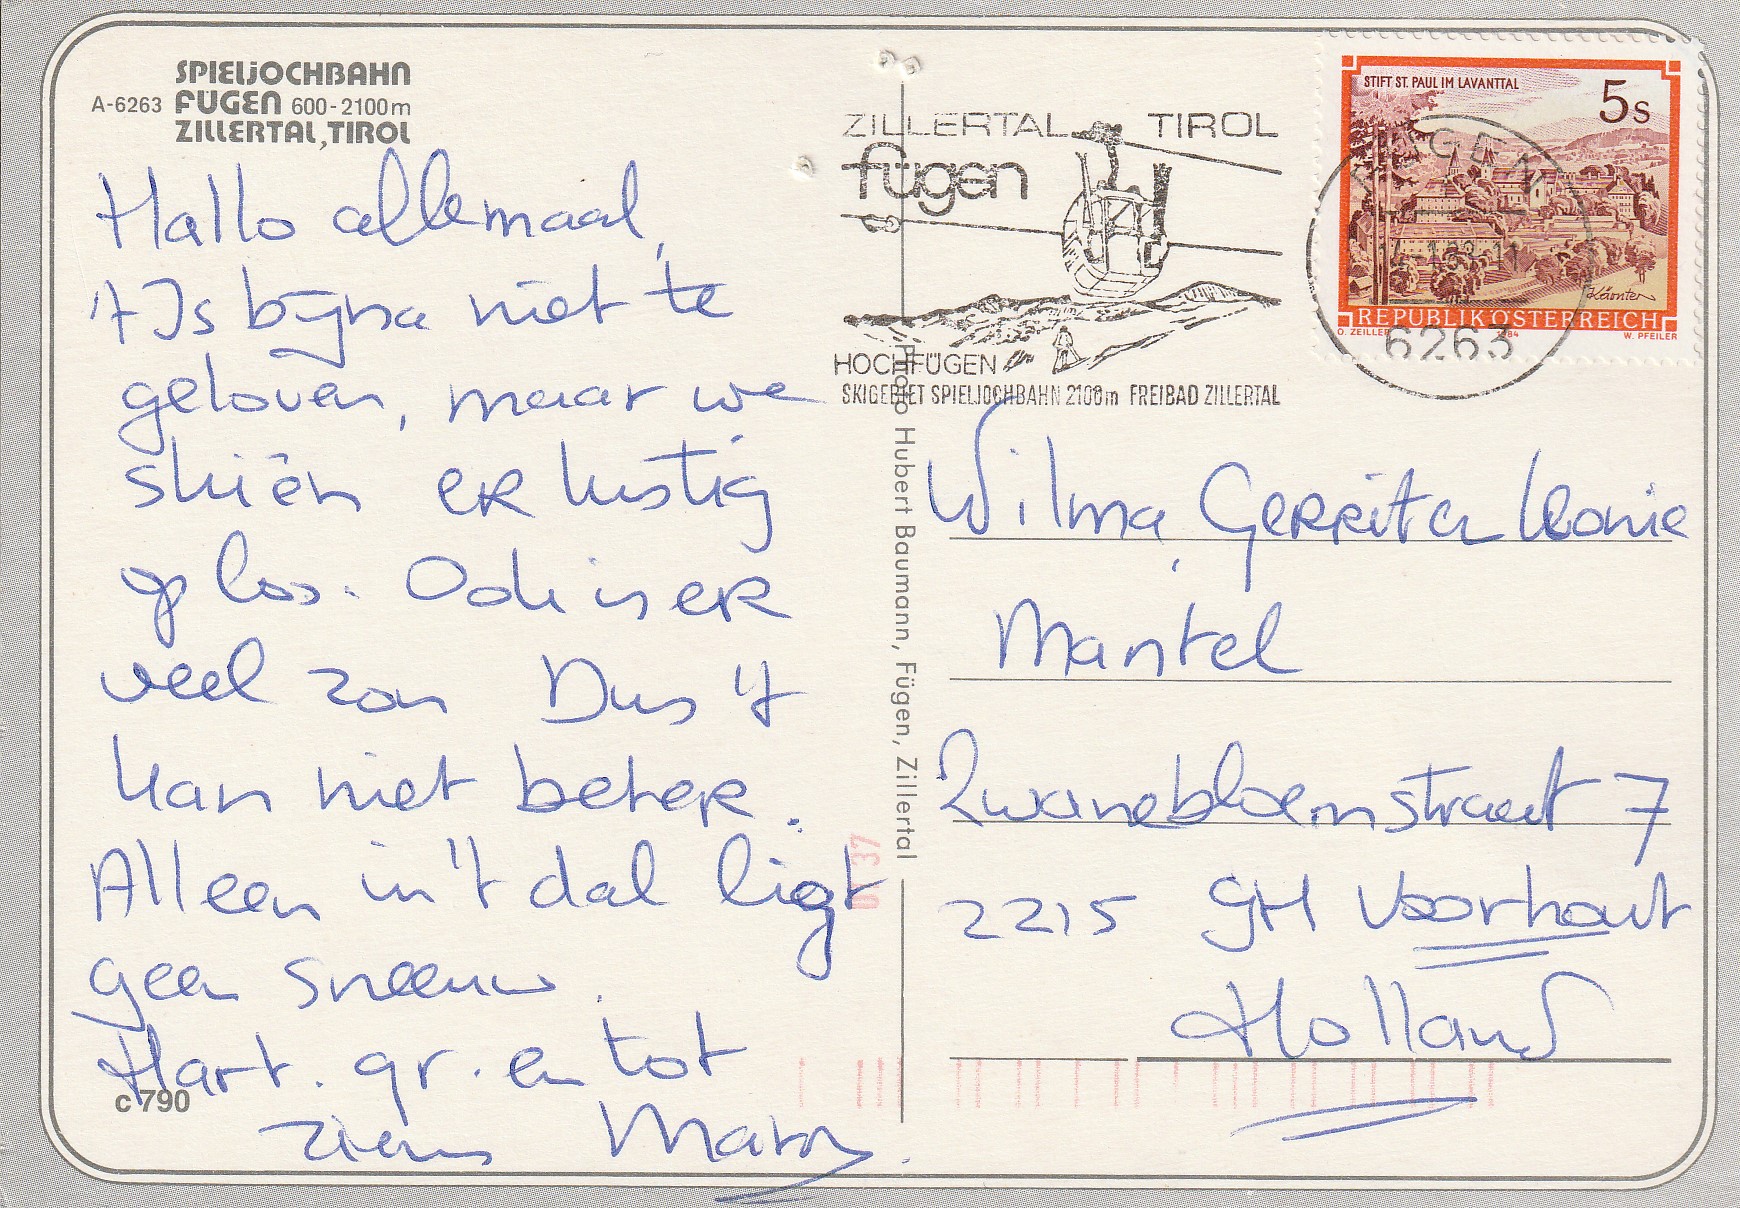 SPIELJOCHBAHN
A-6263 FÜGEN 600-2100m
ZILLERTAL, TIROL
Hallo allemaal,
't Is bijna niet te
geloven, maar we
skiën er lustig
op los. Ook is er
veel zon Dus 't
kan niet beter.
Alleen in 't dal ligt
geen sneeuw.
Hart. gr. en tot
ziens Mary.
c 790
Photo Hubert Baumann, Fügen, Zillertal
ZILLERTAL TIROL
fügen
HOCHFÜGEN
SKIGEBIET SPIELJOCHBAHN 2100m FREIBAD ZILLERTAL
STIFT ST. PAUL IM LAVANTTAL
5s
Kärnten
REPUBLIK ÖSTERREICH
O. ZEILLER 1984 W. PFEILER
FÜGEN
6263
Wilma, Gerrit en Leonie
Mantel
Zwanebloemstraat 7
2215 GH Voorhout
Holland
37